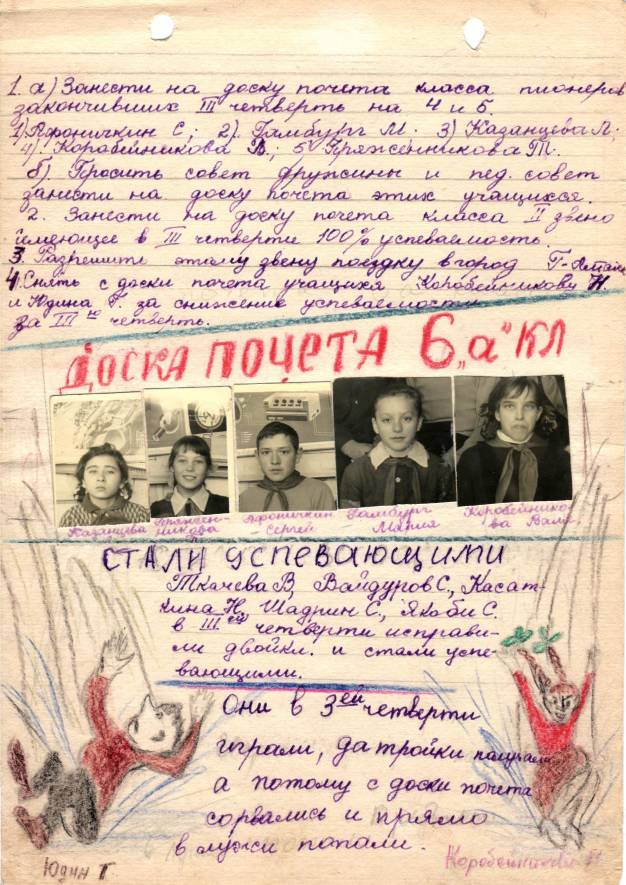 1. а) Занести на доску почета класса пионеров
закончивших III четверть на 4 и 5.
1) Афоничкин С.; 2). Гамбург М. 3) Казанцева Л;
4). Коробейникова В.; 5. Пряженникова Т.
б) Просить совет дружины и пед. совет
занести на доску почета этих учащихся.
2. Занести на доску почета класса II звено
имеющее в III четверти 100% успеваемость.
3. Разрешить этому звену поездку в город Г-Алтайск
4. Снять с доски почета учащихся Коробейникову Н.
и Юдина Г. за снижение успеваемости
за III ю четверть.
ДОСКА ПОЧЕТА 6 „а" КЛ
Казанцева Пряжен- Афоничкин Гамбург Коробейнико-
никова Сергей Мария ва Валя
СТАЛИ УСПЕВАЮЩИМИ
Ткачева В, Вайдуров С., Касат-
кина Н, Шадрин С., Якоби С.
в III ей четверти исправи-
ли двойки. и стали успе-
вающими.
Они в 3 ей четверти
играли, да тройки получали
а потому с доски почета
сорвались и прямо
в лужи попали.
Юдин Г. Коробейникова Н